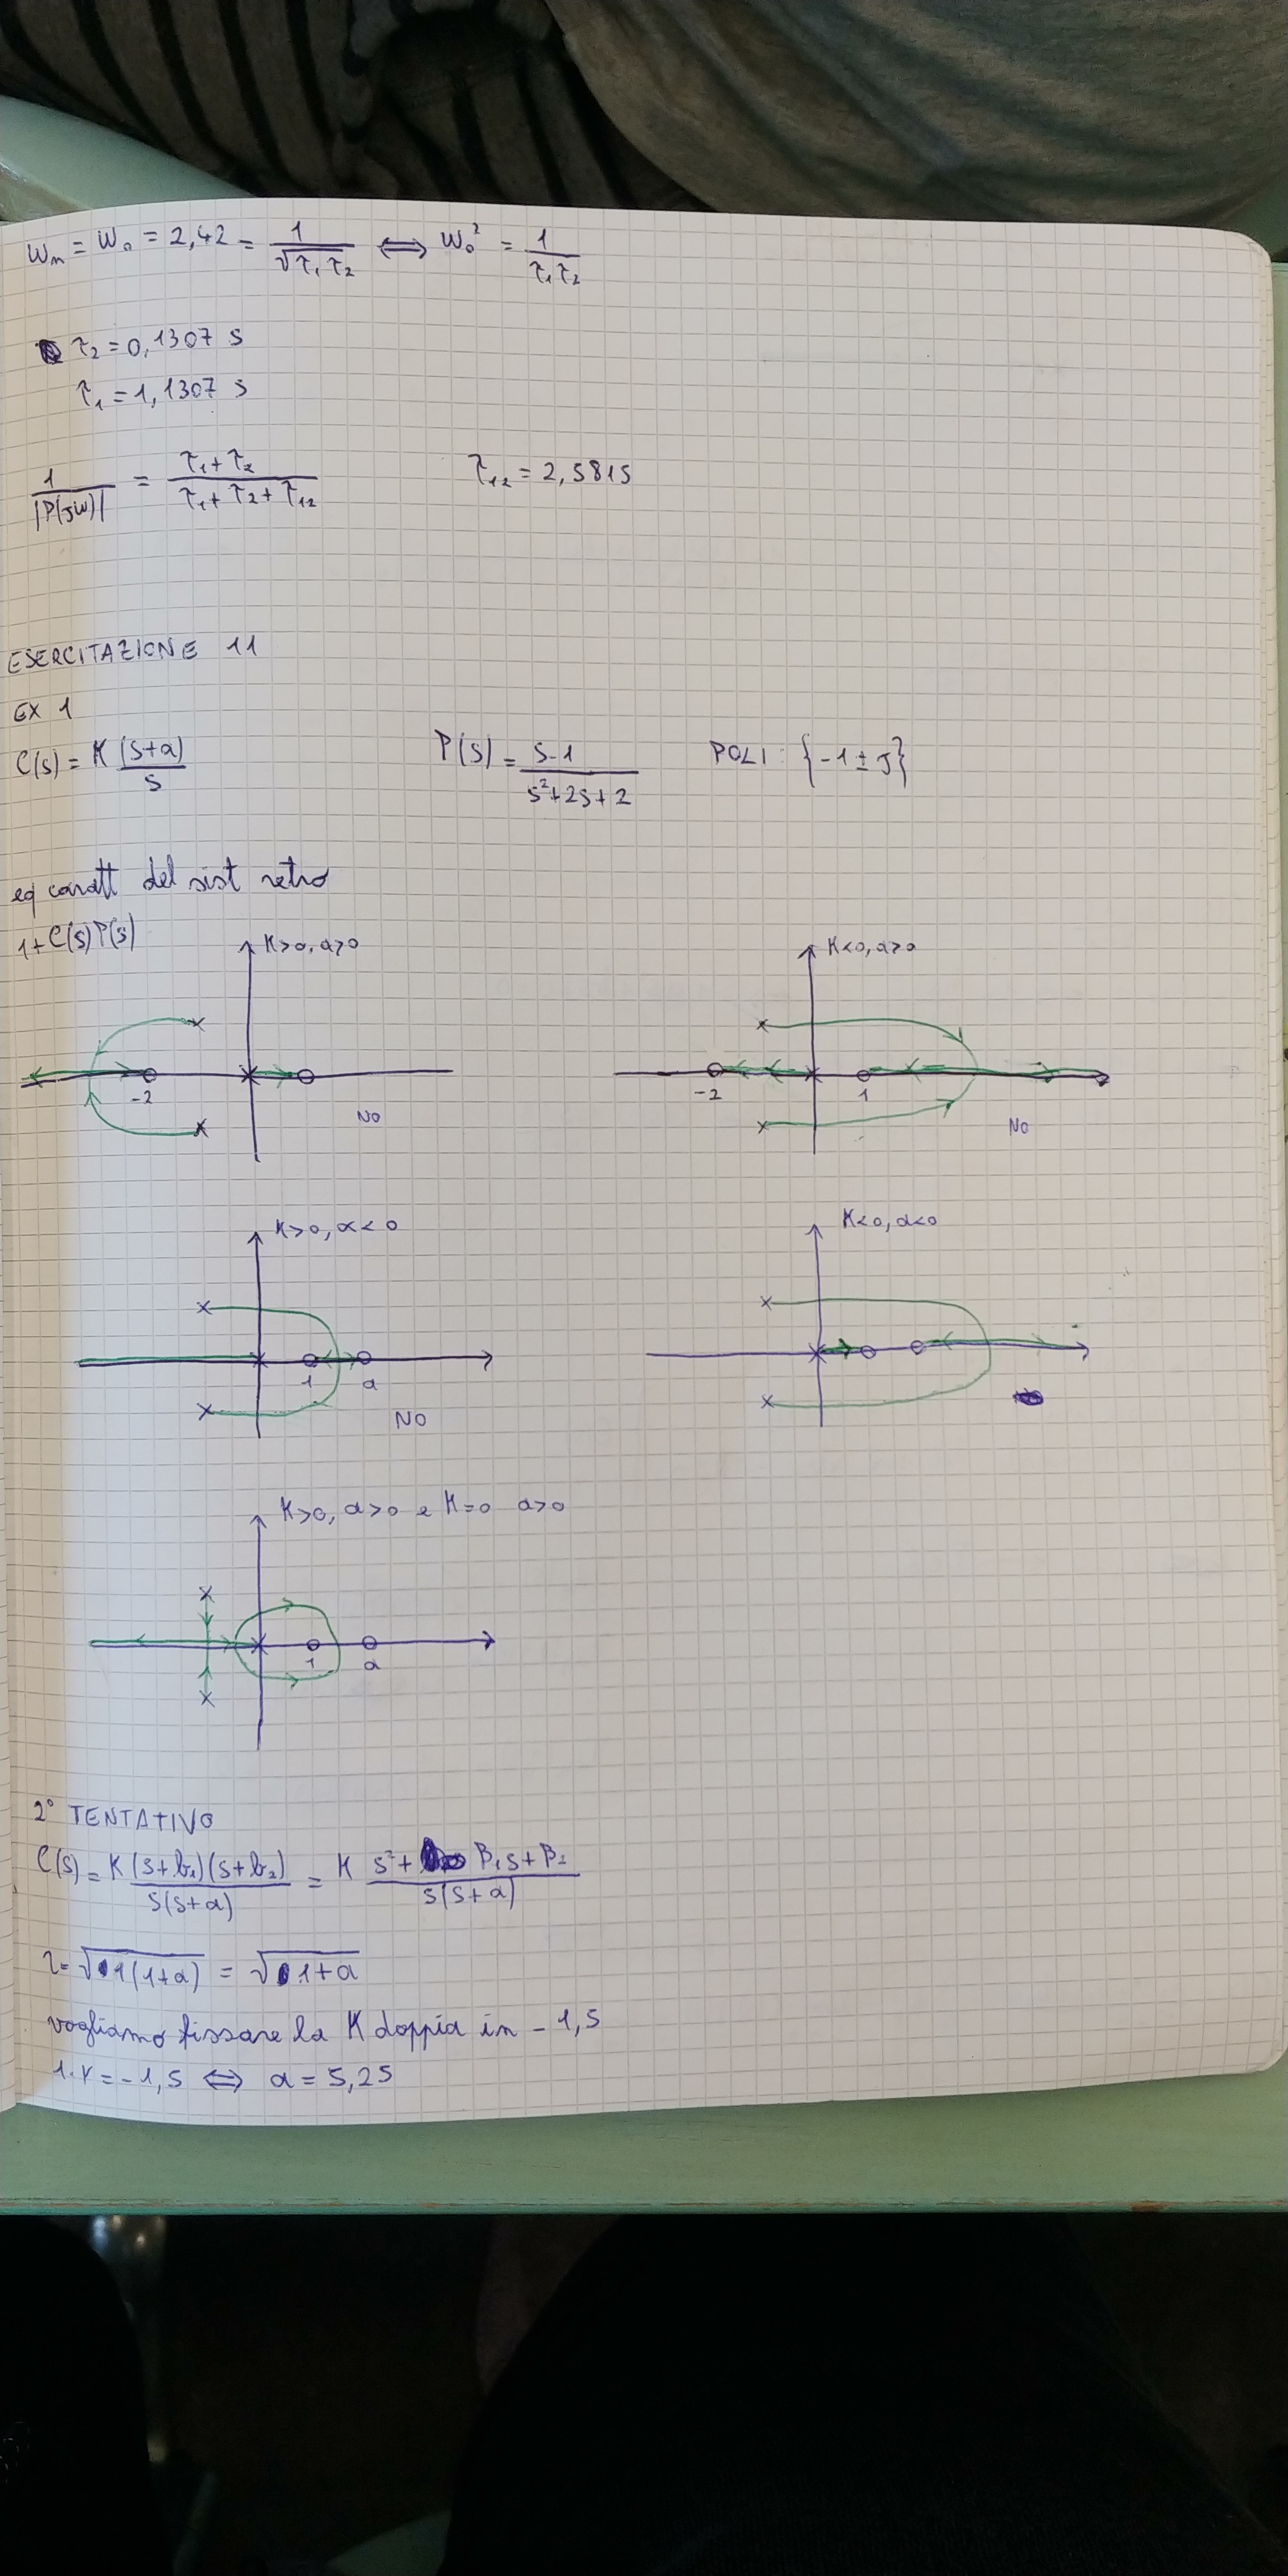 Wn = W0 = 2,42 = 1/√(τ1 τ2) ⟺ W0² = 1/(τ1 τ2)
τ2 = 0,1307 s
τ1 = 1,1307 s
1/|P(jω)| = (τ1 + τ2)/(τ1 + τ2 + τ12) τ12 = 2,5815
ESERCITAZIONE 11
EX 1
C(s) = K (s+a)/s P(s) = (s-1)/(s²+2s+2) POLI: {-1 ± J}
eq caratt del sist retro
1+C(s)P(s)
K>0, a>0 K<0, a>0
-2 -2 1
NO NO
K>0, α<0 K<0, α<0
1 a
NO
K>0, α>0 e K=0 a>0
1 a
2° TENTATIVO
C(s) = K (s+b1)(s+b2)/(s(s+a)) = K (s² + β1s + β2)/(s(s+a))
r = √(1(1+a)) = √(1+a)
vogliamo fissare la K doppia in -1,5
1-r = -1,5 ⟺ a = 5,25